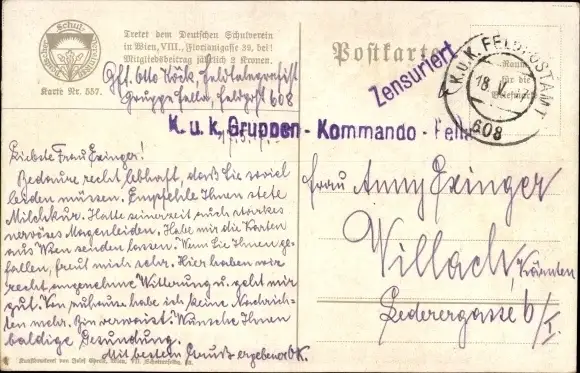 Deutscher Schul-Verein
Tretet dem Deutschen Schulverein
in Wien, VIII., Florianigasse 39, bei!
Mitgliedsbeitrag jährlich 2 Kronen.
Karte Nr. 557.
Postkarte
Zensuriert
K.U.K. FELDPOSTAMT
18. V.
608
für die
Gfr. Otto Röck, Feldtelegrafist
Gruppe Fella, Feldpost 608
K.u.k. Gruppen-Kommando-Fella
Liebste Frau Exinger!
Bedaure recht lebhaft, daß Sie so viel
leiden müssen. Empfehle Ihnen stete
Milchkur. Hatte seinerzeit auch starkes
nervöses Magenleiden. Habe mir die Karten
aus Wien senden lassen. Wenn Sie Ihnen ge-
fallen, freut mich sehr. Hier haben wir
recht angenehme Witterung u. geht mir
gut. Von zuhause habe ich keine Nachrich-
ten mehr. Bin verwaist. Wünsche Ihnen
baldige Gesundung.
Mit bestem Gruß ergebener OK.
Frau Anny Exinger
Villach, Kärnten
Lederergasse 6/I.
Kunstdruckerei von Josef Wien, VII.